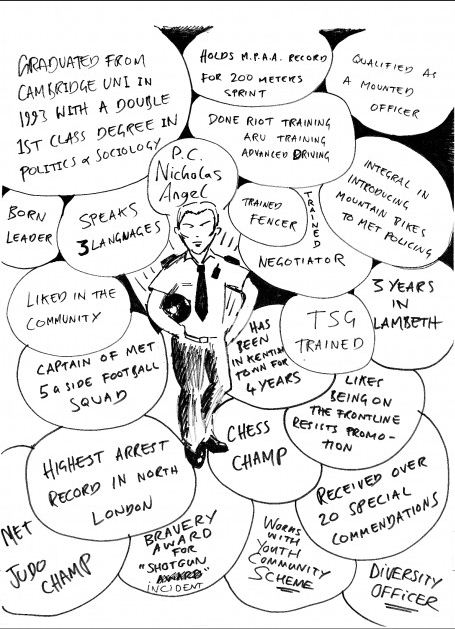 GRADUATED FROM
CAMBRIDGE UNI IN
1993 WITH A DOUBLE
1ST CLASS DEGREE IN
POLITICS & SOCIOLOGY
HOLDS M.P.A.A. RECORD
FOR 200 METERS
SPRINT
QUALIFIED AS
A MOUNTED
OFFICER
DONE RIOT TRAINING
ARU TRAINING
ADVANCED DRIVING
P.C.
Nicholas
Angel
INTEGRAL IN
INTRODUCING
MOUNTAIN BIKES
TO MET POLICING
BORN
LEADER
SPEAKS
3 LANGNAGES
TRAINED
FENCER
TRAINED
NEGOTIATOR
LIKED IN THE
COMMUNITY
3 YEARS
IN
LAMBETH
HAS
BEEN
IN KENTISH
TOWN FOR
4 YEARS
TSG
TRAINED
CAPTAIN OF MET
5 a SIDE FOOTBALL
SQUAD
LIKES
BEING ON
THE FRONTLINE
RESISTS PROMO-
TION
HIGHEST ARREST
RECORD IN NORTH
LONDON
CHESS
CHAMP
RECEIVED OVER
20 SPECIAL
COMMENDATIONS
MET
JUDO
CHAMP
BRAVERY
AWARD
FOR
"SHOTGUN
AWARD"
INCIDENT
WORKS
WITH
YOUTH
COMMUNITY
SCHEME
DIVERSITY
OFFICER